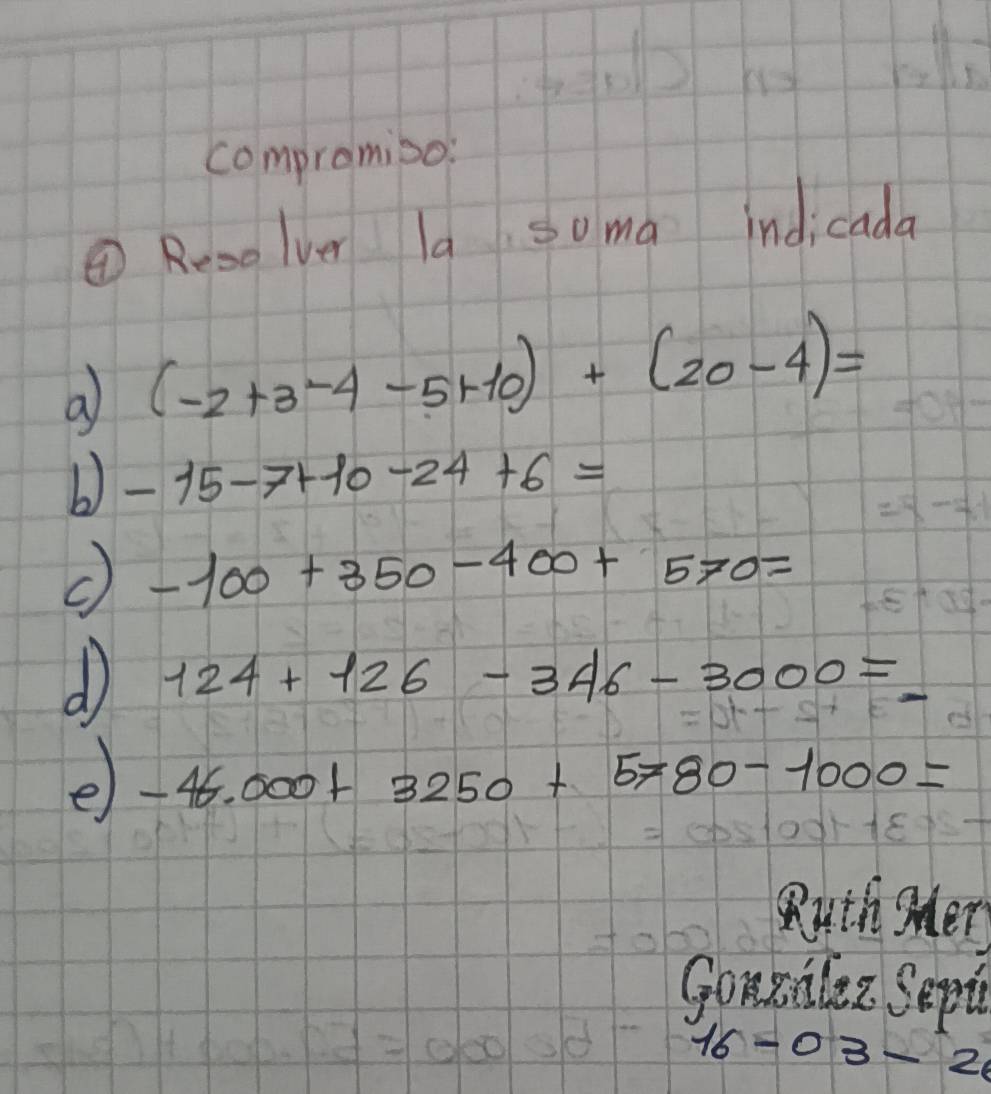 compromiso:
① Resolver la suma indicada
a) (-2+3-4-5+10) + (20-4)=
b) -15-7+10-24+6=
c) -100+350-400+ 570=
d) 124+126-346-3000=
e) -46.000+ 3250 + 5780-1000=
Ruth Mery
González Sepú
16-03-2